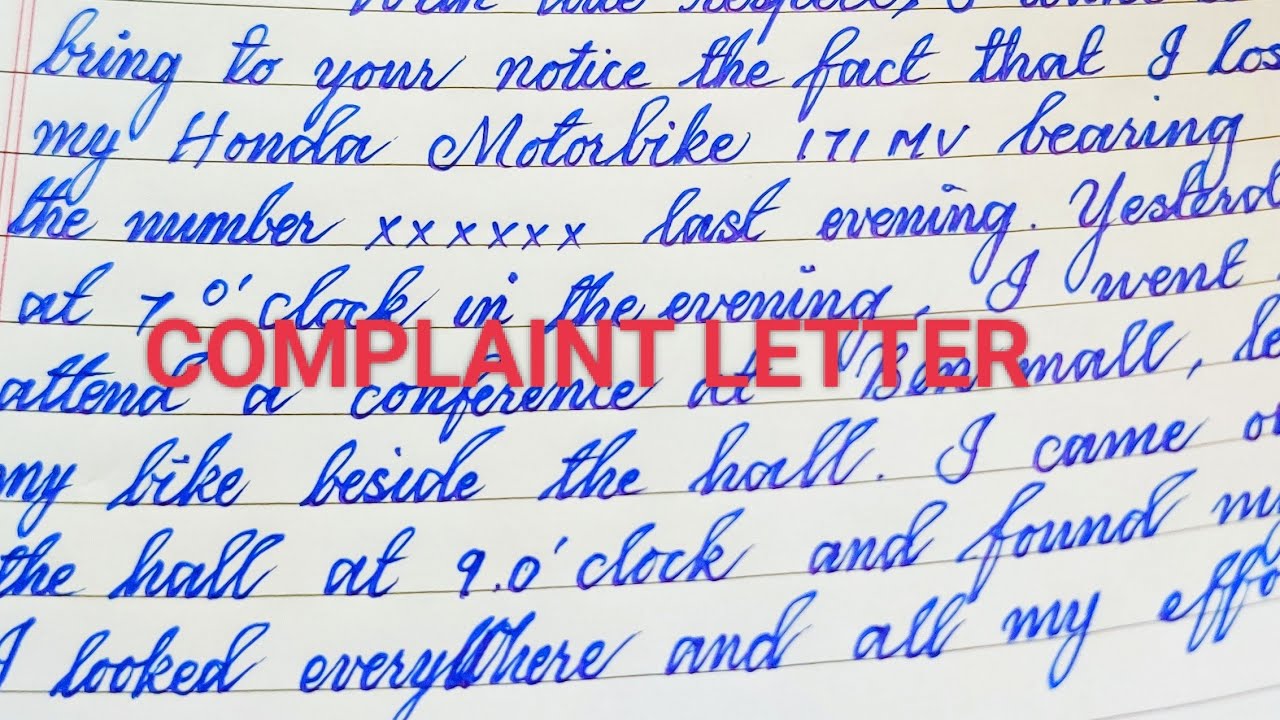 With due respect, I
bring to your notice the fact that I los
my Honda Motorbike 171 MV bearing
the number xxxxxx last evening. Yesterd
at 7 o'clock in the evening, I went
COMPLAINT LETTER
attend a conference at Ben mall, le
my bike beside the hall. I came o
the hall at 9.0'clock and found my
I looked everywhere and all my effo